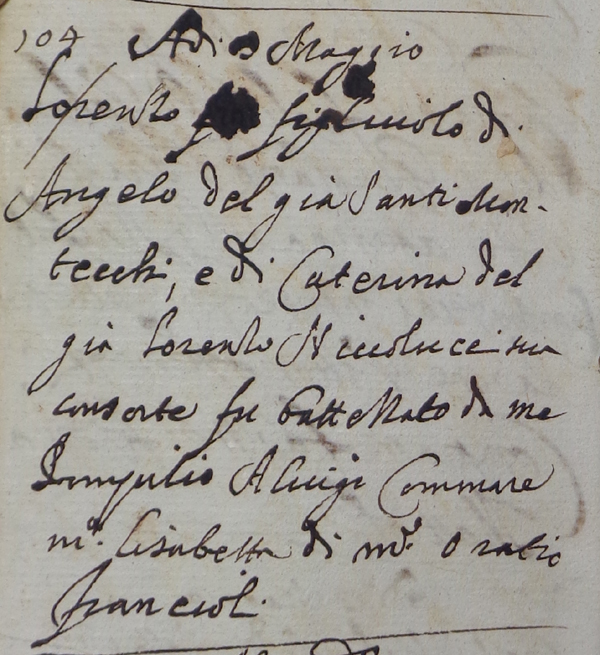 104 Adi Maggio
Lorenzo figliuolo di
Angelo del già Santi Mon-
tecchi, e di Caterina del
già Lorenzo Niccolucci sua
consorte fu battezzato da me
Pompilio Aluigi Commare
m.ª Lisabetta di m.º Oratio
Francioli